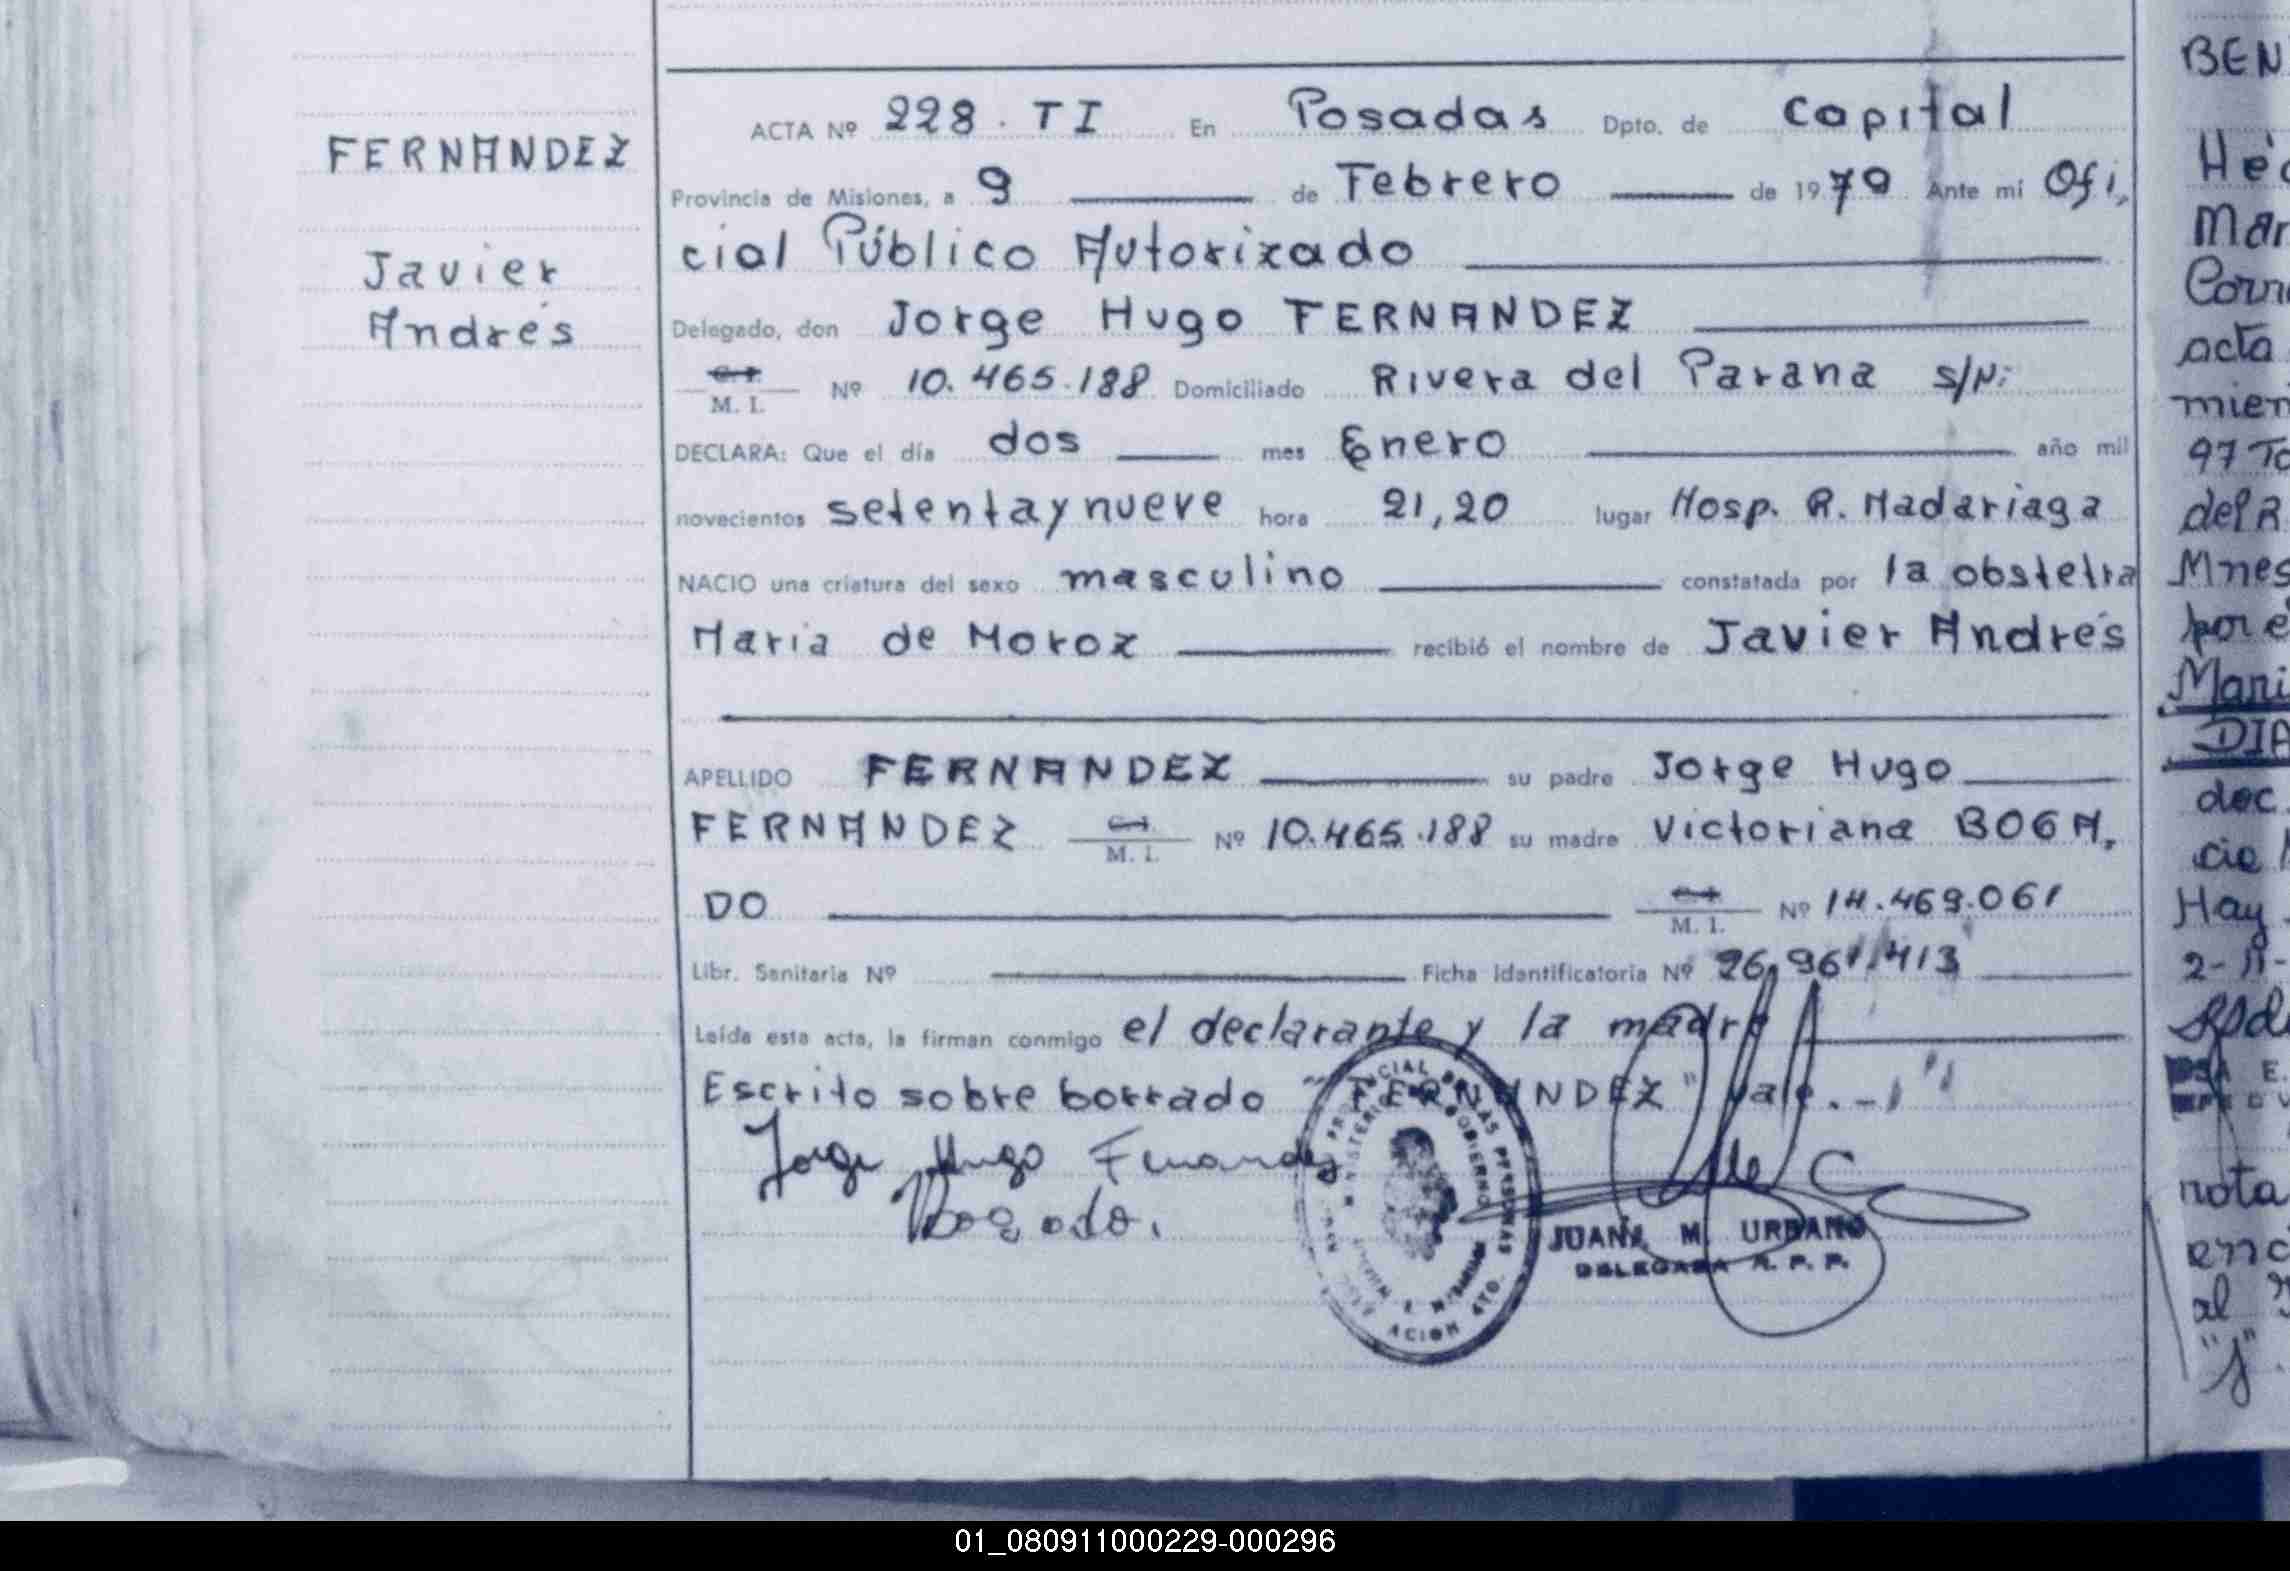 FERNANDEZ
Javier
Andrés
ACTA Nº 228. TI En Posadas Dpto. de Capital
Provincia de Misiones, a 9 de Febrero de 1979 Ante mí Ofi,
cial Público Autorizado
Delegado, don Jorge Hugo FERNANDEZ
C. I.
M. I. Nº 10.465.188 Domiciliado Rivera del Parana s/N:
DECLARA: Que el día dos mes Enero año mil
novecientos setenta y nueve hora 21,20 lugar Hosp. R. Madariaga
NACIO una criatura del sexo masculino constatada por la obstetra
Maria de Moroz recibió el nombre de Javier Andrés
APELLIDO FERNANDEZ su padre Jorge Hugo
FERNANDEZ C. I.
M. I. Nº 10.465.188 su madre Victoriana BOGA,
DO C. I.
M. I. Nº 14.469.061
Libr. Sanitaria Nº Ficha Identificatoria Nº 26.961.413
Leída esta acta, la firman conmigo el declarante y la madre
Escrito sobre borrado "FERNANDEZ" vale.-
Jorge Hugo Fernandez
Bogado.
JUANA M. URBANO
DELEGADA R. P. P.
BEN
Mar
acta
mien
97 To
del R.
Mnes
por e
Mari
DIA
doc.
Hay
nota
al
01_080911000229-000296